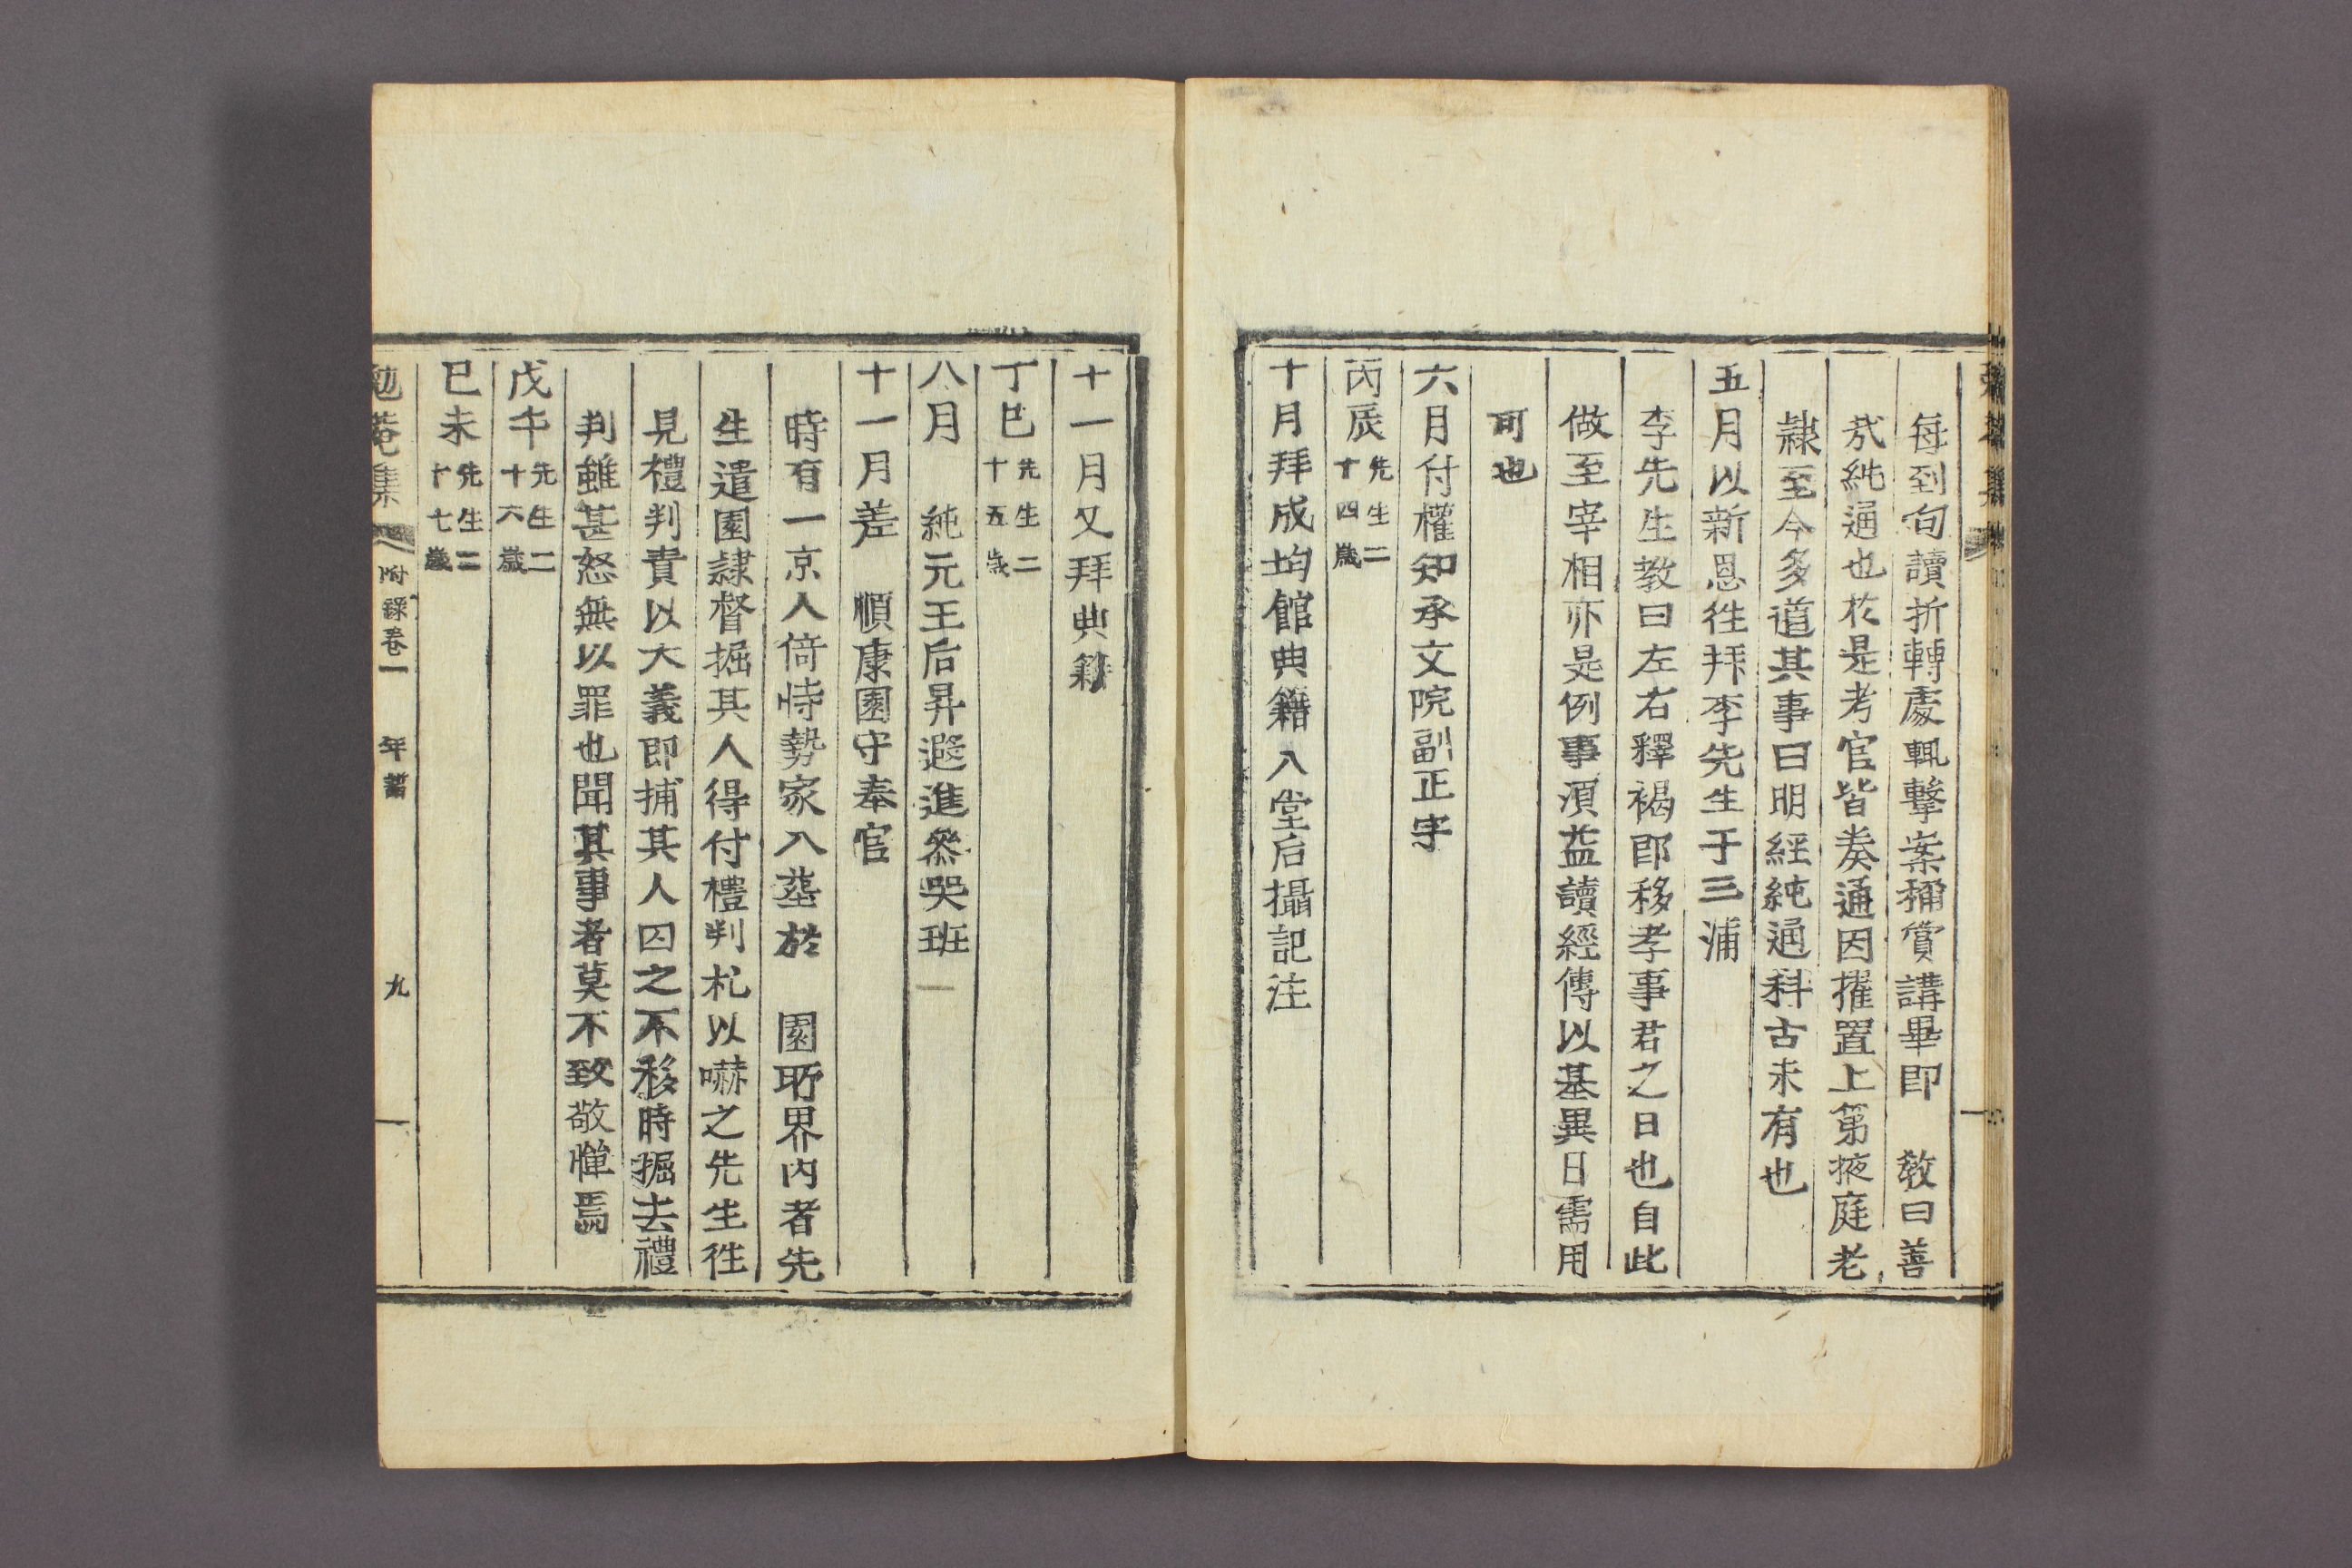 每到句讀折轉處輒擊案稱賞講畢即　教曰善
哉純通也於是考官皆奏通因擢置上第掖庭老
隷至今多道其事曰明經純通科古未有也
五月以新恩往拜李先生于三浦
李先生教曰左右釋褐即移孝事君之日也自此
做至宰相亦是例事須益讀經傳以基異日需用
可也
六月付權知承文院副正字
丙辰先生二十四歲
十月拜成均館典籍入堂后攝記注
十一月又拜典籍
丁巳先生二十五歲
八月　純元王后昇遐進參哭班
十一月差　順康園守奉官
時有一京人倚恃勢家入葬於　園所界內者先
生遣園隷督掘其人得付禮判札以嚇之先生往
見禮判責以大義即捕其人囚之不移時掘去禮
判雖甚怒無以罪也聞其事者莫不致敬憚焉
戊午先生二十六歲
己未先生二十七歲
勉菴集　附錄卷一　年譜　九